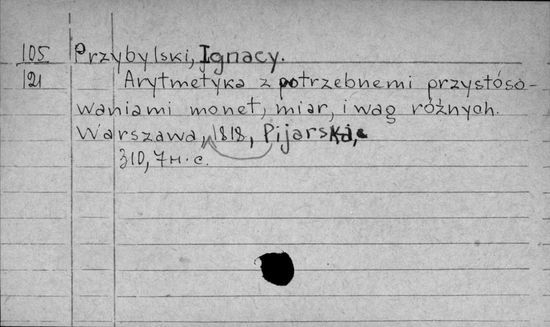 105 Przybylski, Ignacy.
121 Arytmetyka z potrzebnemi przystóso-
waniami monet, miar, i wag różnych.
Warszawa, 1818, Pijarska,
310, 7 н. с.